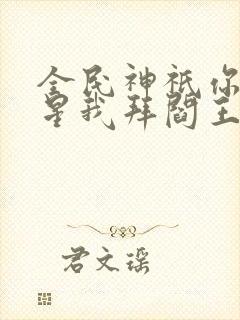 全民神祇你
星我拜阎王
君文瑶